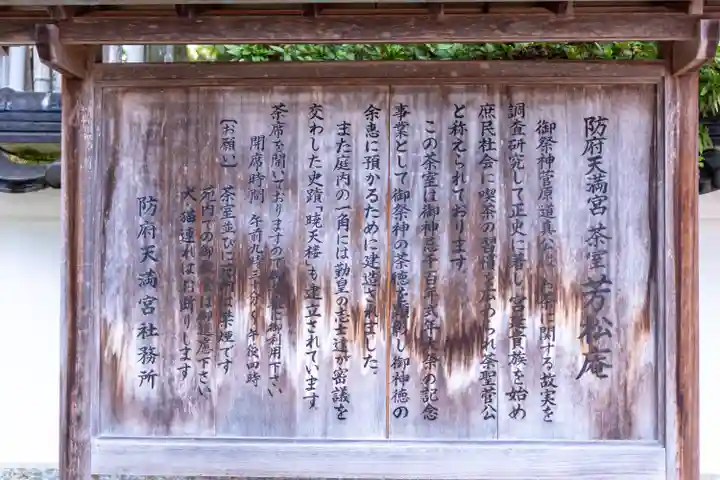 防府天満宮 茶室 芳松庵
御祭神菅原道真公は お茶に関する故実を
調査研究して正史に著し 宮廷貴族を始め
庶民社会に喫茶の習慣を広められ茶聖菅公
と称えられております
この茶室は御神忌千百年式年大祭の記念
事業として御祭神の茶徳を顕彰し御神徳の
余恵に預かるために建造されました
また庭内の一角には勤皇の志士達が密議を
交わした史蹟「暁天楼」も建立されています
茶席を開いておりますので御自由に御利用下さい
開席時間 午前九時三十分〜午後四時
【お願い】 茶室並びに は禁煙です
苑内での は御遠慮下さい
犬 猫連れはお断りします
防府天満宮社務所